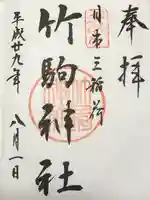 奉拝
日本三稲荷
竹駒神社
平成廿九年
八月一日